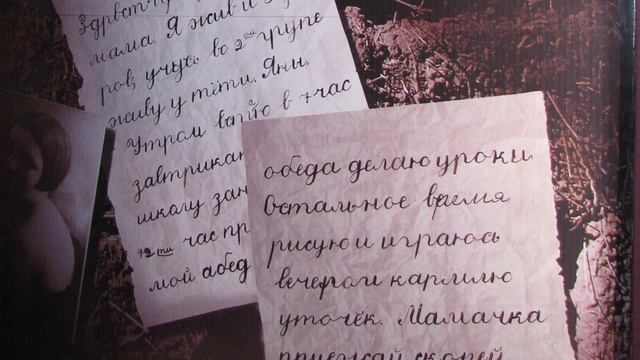 Здравст
мама. Я жив и з
ров, учусь во 2ой групе
живу у тёти. Яны.
Утром встаю в 7 час
завтрикаю
школу зан
12ти час пр
мой абед
обеда делаю уроки
Остальное время
рисую и играюсь
вечером кармлю
уточек. Мамачка
приежай скорей